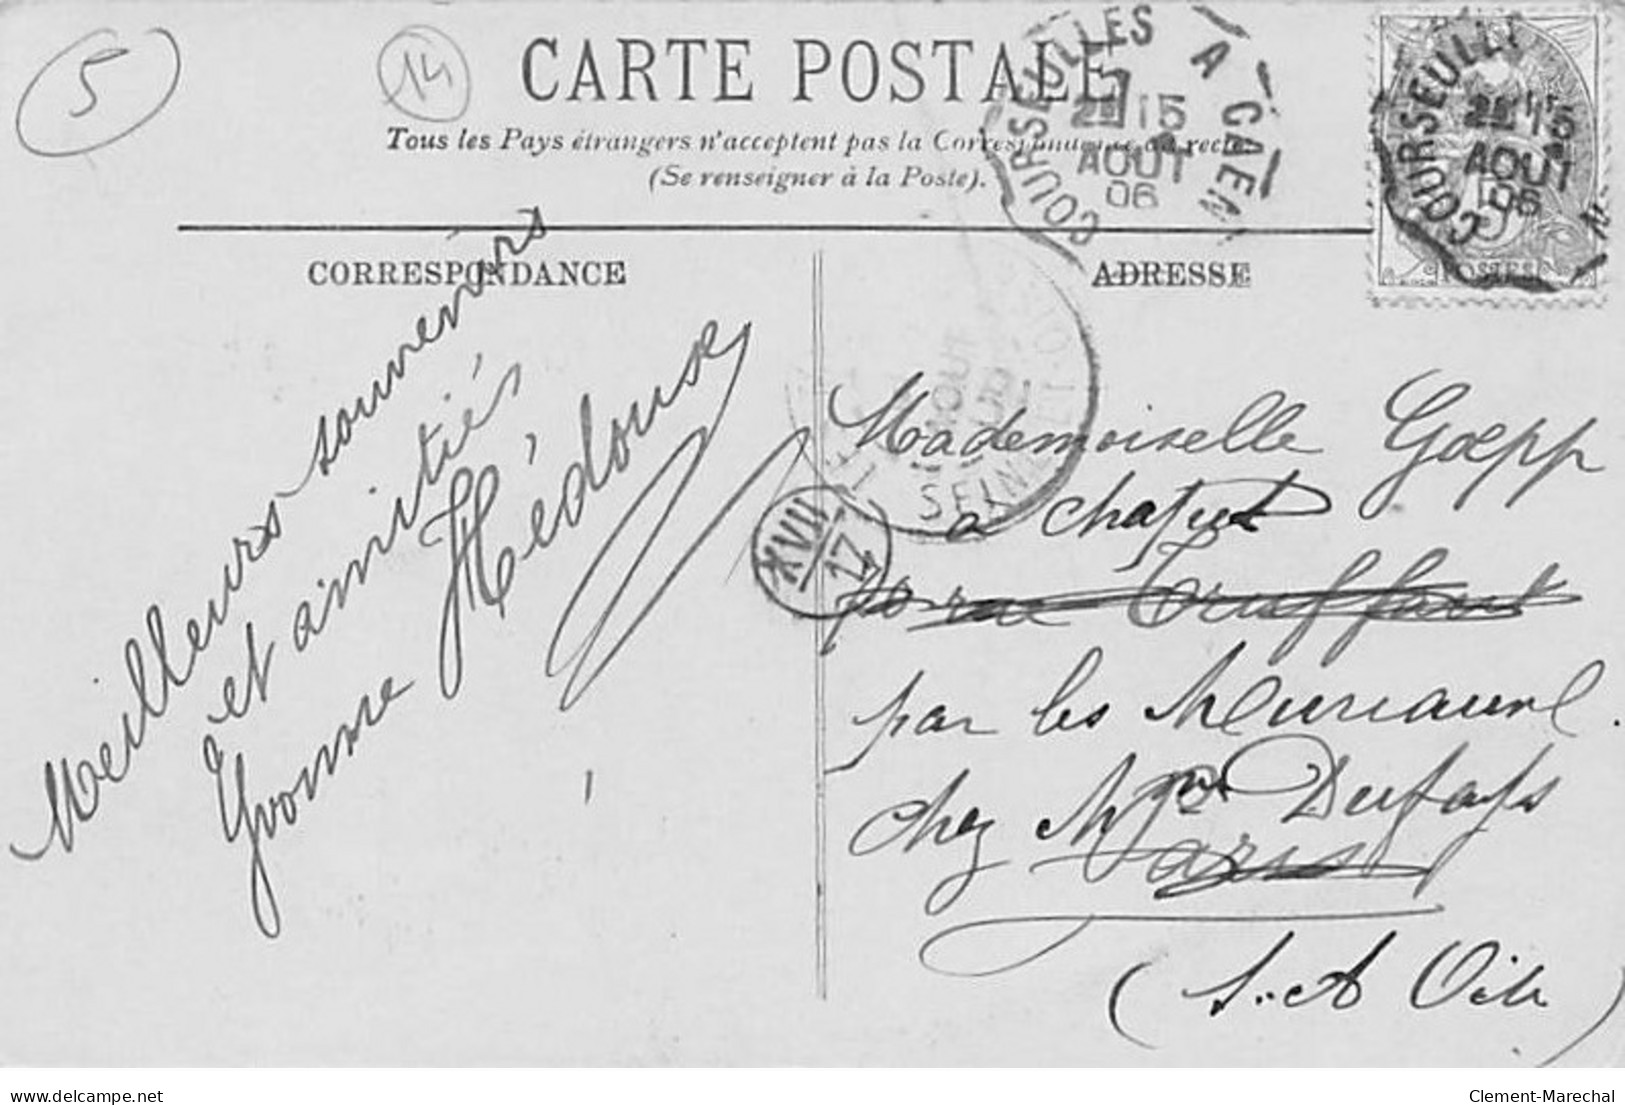 5
14
CARTE POSTALE
Tous les Pays étrangers n'acceptent pas la Correspondance au recto
(Se renseigner à la Poste).
COURSEULLES A CAEN
2E 15
AOUT
06
COURSEULL
2E 15
AOUT
06
5
POSTES
CORRESPONDANCE
ADRESSE
Meilleurs souvenirs
et amitiés
Yvonne Hédoux
AOUT
SEINE
XVII
17
Mademoiselle Goepp
a Chapet
rue Truffaut
par les Mureaux
chez Mme Dufays
Paris
(S.-et Oise)
delcampe.net
Clement-Marechal